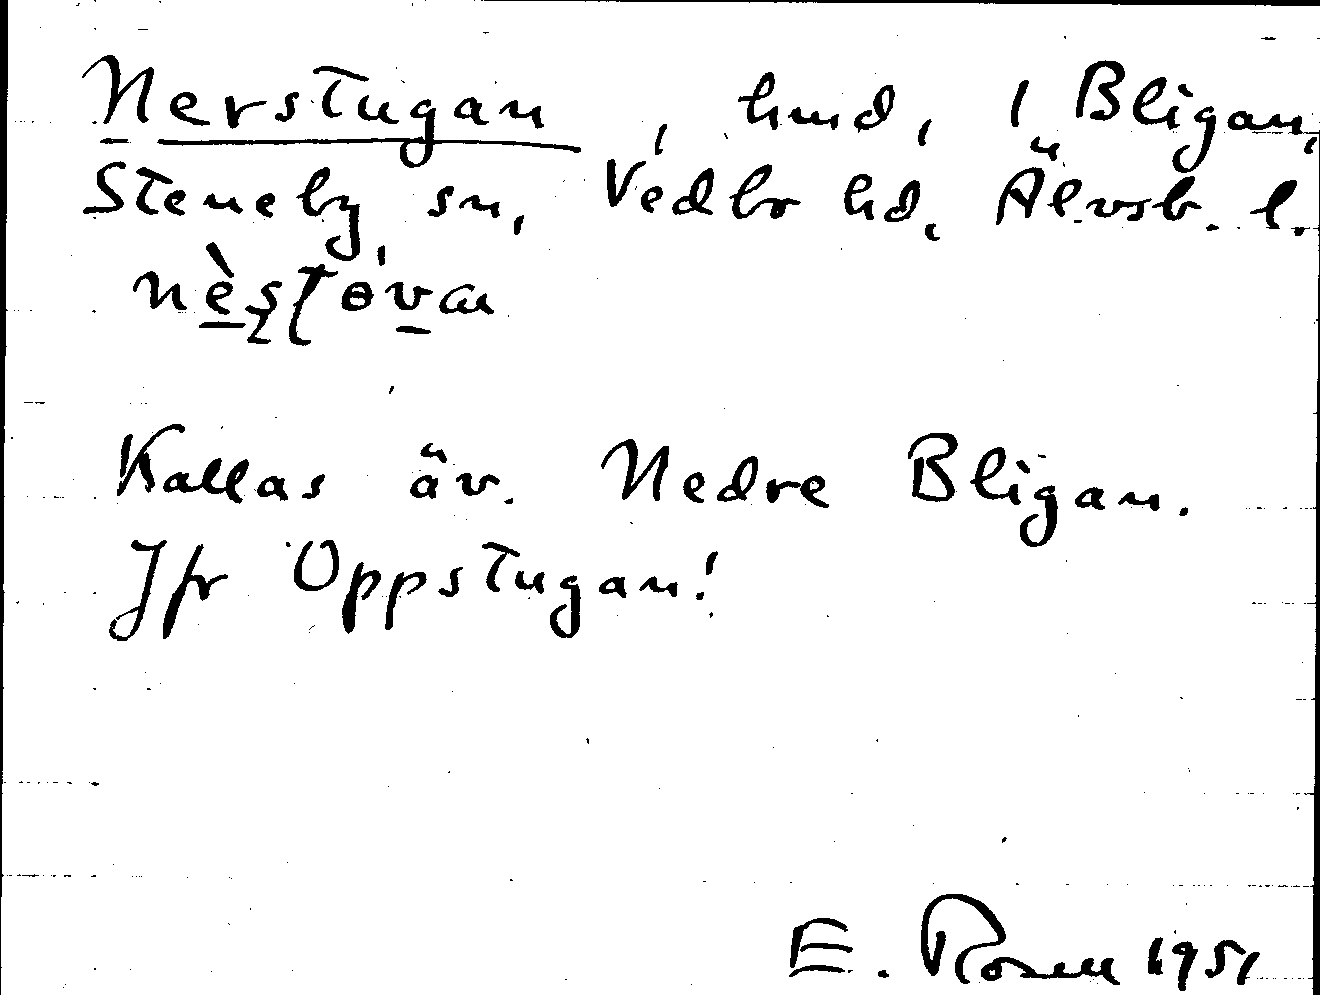 Nerstugan, hmd, 1 Bligan,
Steneby sn, Vedbo hd, Älvsb. l.
Kallas äv. Nedre Bligan.
Jfr Uppstugan!
E. Rosell 1951